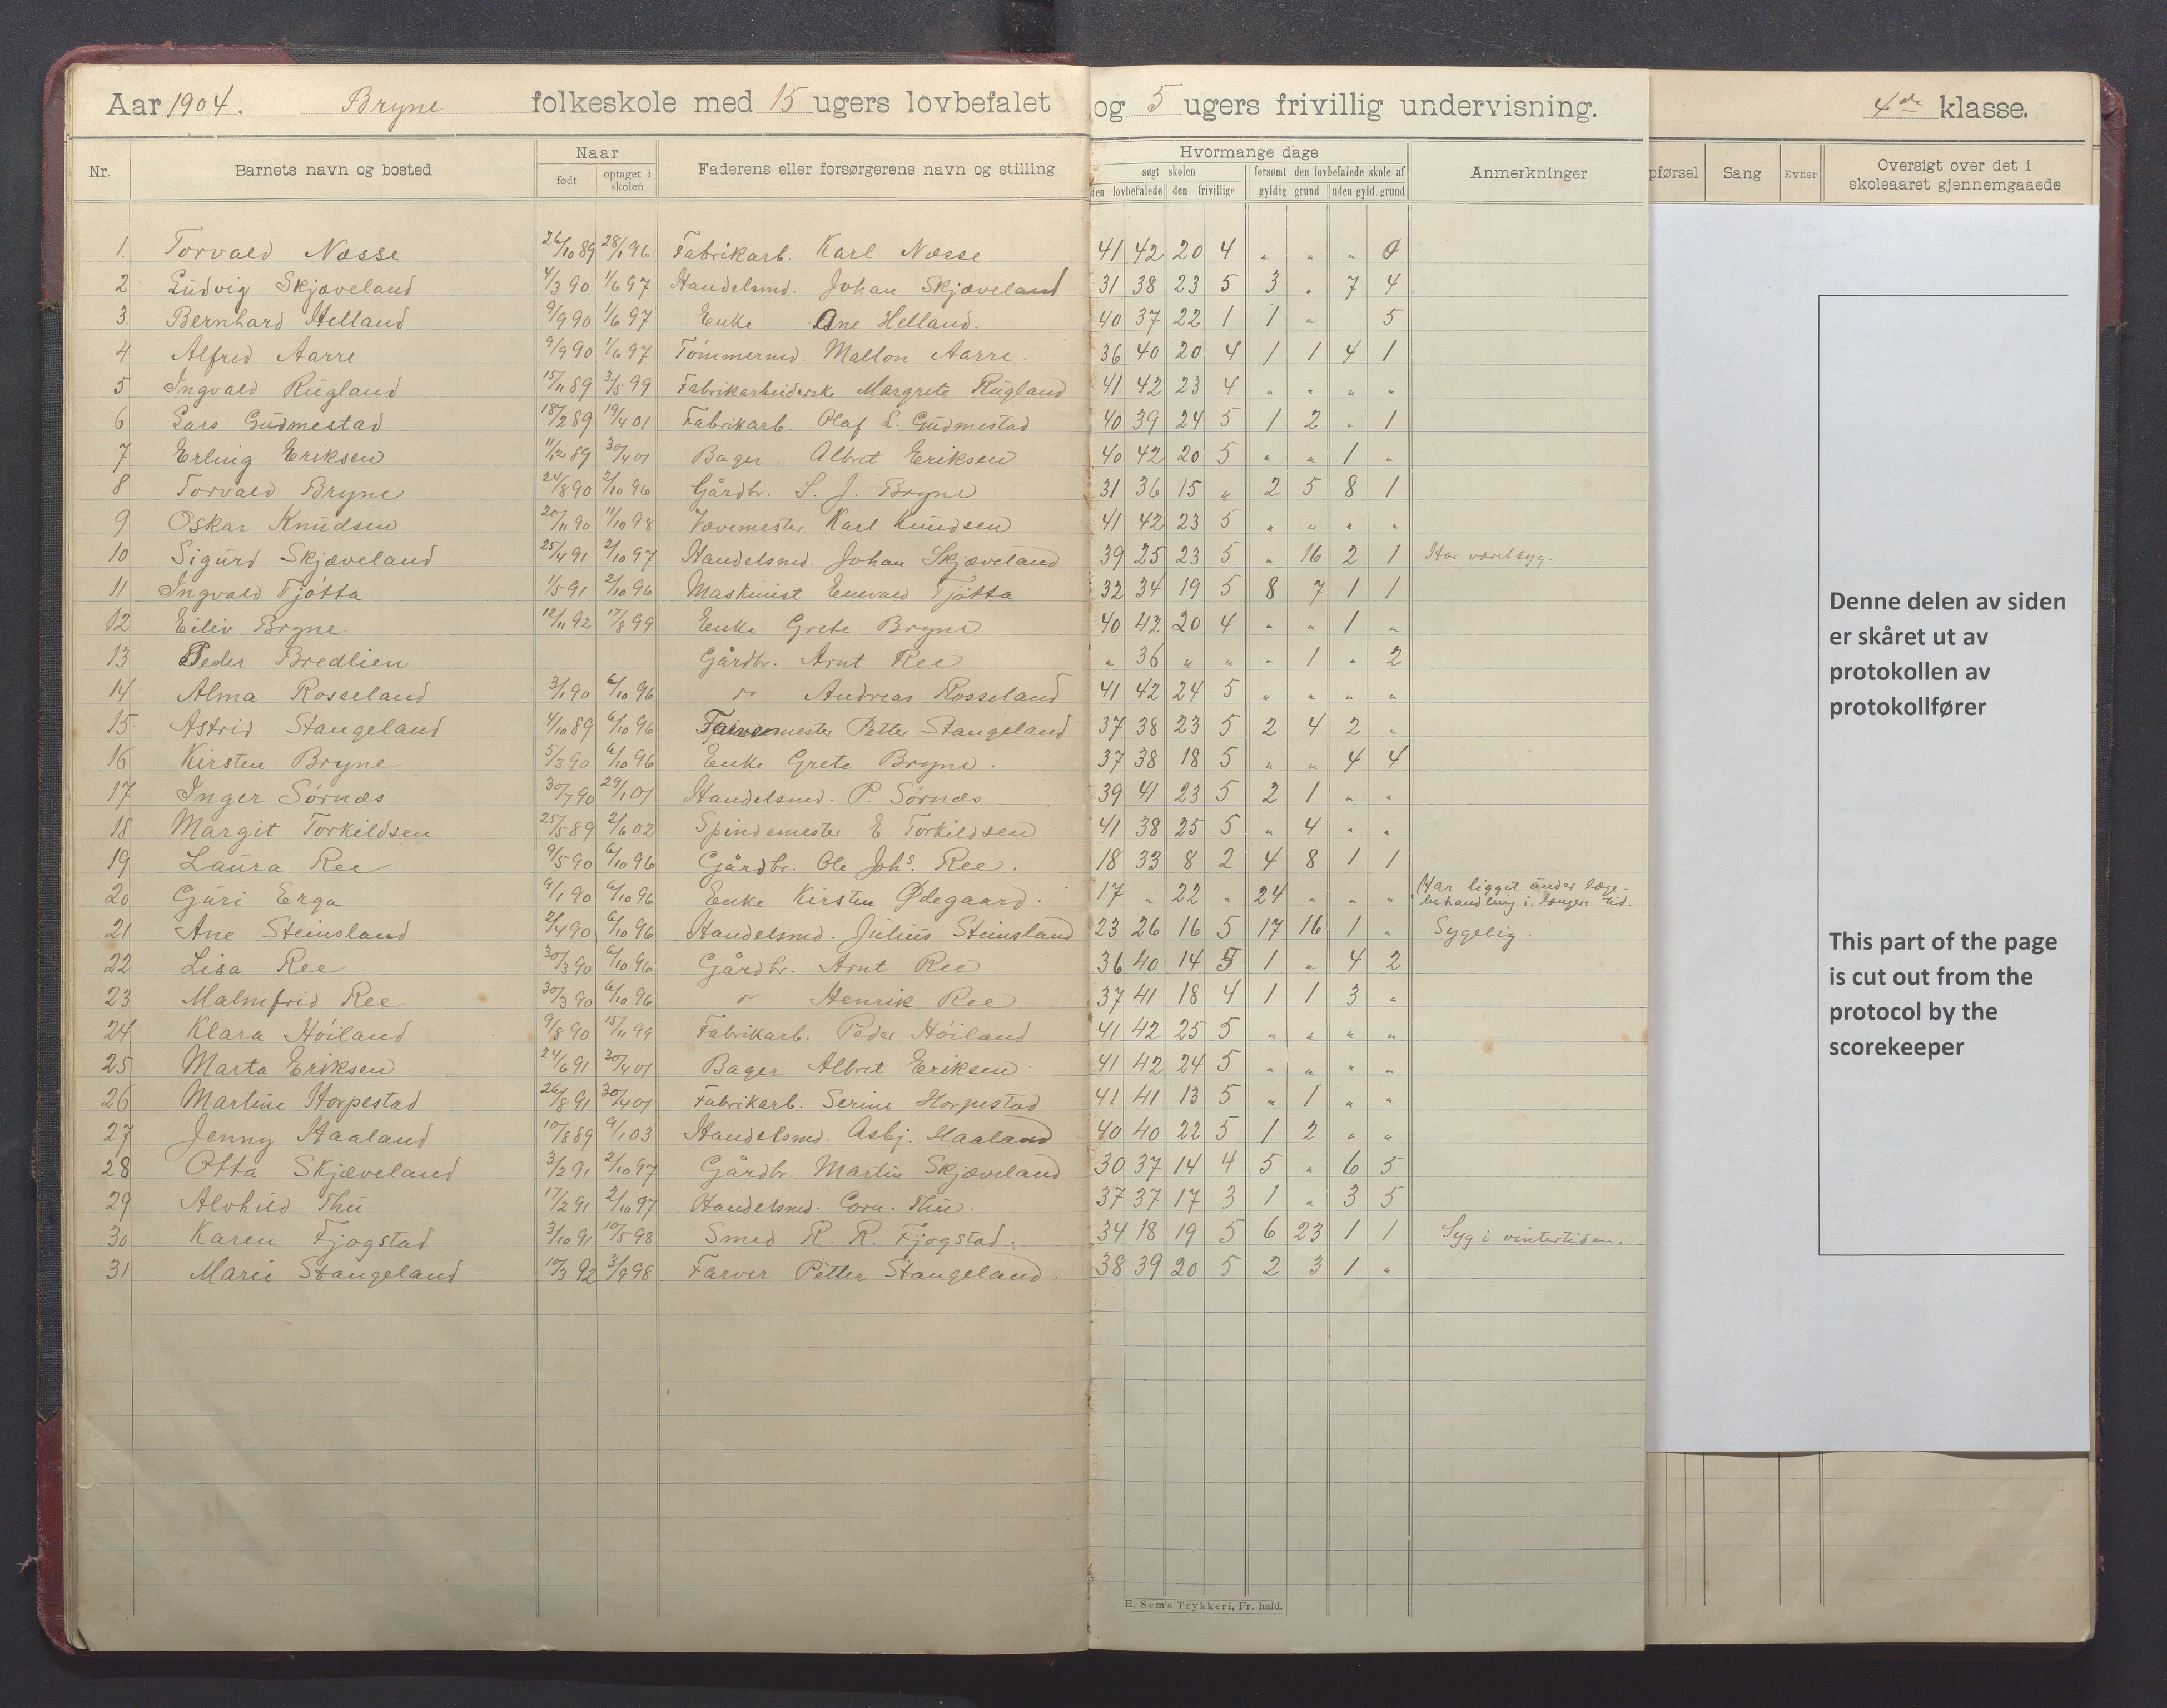 Aar 1904. Bryne folkeskole med 15 ugers lovbefalet og 5 ugers frivillig undervisning. 4de klasse.
Nr. Barnets navn og bosted Naar født optaget i skolen Faderens eller forsørgerens navn og stilling Hvormange dage søgt skolen den lovbefalede den frivillige forsømt den lovbefalede skole af gyldig grund uden gyld. grund Anmerkninger pførsel Sang Evner Oversigt over det i skoleaaret gjennemgaaede
1. Torvald Næsse 26/10 89 28/1 96 Fabrikarb. Karl Næsse 41 42 20 4 " " " 0
2 Ludvig Skjæveland 4/3 90 1/6 97 Handelsmd. Johan Skjæveland 31 38 23 5 3 " 7 4
3 Bernhard Helland 9/9 90 1/6 97 Enke Ane Helland. 40 37 22 1 1 " 5
4 Alfred Aarre 9/9 90 1/6 97 Tømmermd. Mallon Aarre. 36 40 20 4 1 1 4 1
5 Ingvald Rugland 15/11 89 3/5 99 Fabrikarbeiderske Margrete Rugland 41 42 23 4 " " " "
6 Lars Gudmestad 18/2 89 19/4 01 Fabrikarb. Olaf L. Gudmestad 40 39 24 5 1 2 " 1
7 Erling Eriksen 11/12 89 30/4 01 Bager Albret Eriksen 40 42 20 5 " " 1 "
8 Torvald Bryne 24/8 90 2/10 96 Gårdbr. S. J. Bryne 31 36 15 " 2 5 8 1
9 Oskar Knudsen 20/11 90 11/10 98 Vævemester Karl Knudsen 41 42 23 5 " " " "
10 Sigurd Skjæveland 25/4 91 2/10 97 Handelsmd. Johan Skjæveland 39 25 23 5 " 16 2 1 Har været syg.
11 Ingvald Tjøtta 1/5 91 2/10 96 Maskinist Enevald Tjøtta 32 34 19 5 8 7 1 1
12 Eiliv Bryne 12/11 92 17/8 99 Enke Grete Bryne 40 42 20 4 " " 1 "
13 Peder Bredlien Gårdbr. Arnt Ree " 36 " " " 1 " 2
14 Alma Rosseland 3/1 90 6/10 96 " Andreas Rosseland 41 42 24 5 " " " "
15 Astrid Stangeland 4/10 89 6/10 96 Farvemester Petter Stangeland 37 38 23 5 2 4 2 "
16 Kirsten Bryne 5/3 90 6/10 96 Enke Grete Bryne. 37 38 18 5 " " 4 4
17 Inger Sørnæs 30/7 90 29/1 01 Handelsmd. P. Sørnæs 39 41 23 5 2 1 " "
18 Margit Torkildsen 25/5 89 2/6 02 Spindemester E. Torkildsen 41 38 25 5 " 4 " "
19 Laura Ree 9/5 90 6/10 96 Gårdbr. Ole Johs. Ree. 18 33 8 2 4 8 1 1
20 Guri Erga 9/1 90 6/10 96 Enke Kirsten Ødegaard. 17 " 22 " 24 " " " Har ligget under læge-
behandling i længere tid.
21 Ane Steinsland 2/4 90 6/10 96 Handelsmd. Julius Steinsland 23 26 16 5 17 16 1 " Sygelig.
22 Lisa Ree 30/3 90 6/10 96 Gårdbr. Arnt Ree 36 40 14 5 1 " 4 2
23 Malmfrid Ree 30/3 90 6/10 96 " Henrik Ree 37 41 18 4 1 1 3 "
24 Klara Høiland 9/8 90 15/11 99 Fabrikarb. Peder Høiland 41 42 25 5 " " " "
25 Marta Eriksen 24/6 91 30/4 01 Bager Albret Eriksen 41 42 24 5 " " " "
26 Martine Horpestad 26/8 91 30/4 01 Fabrikarb. Serine Horpestad 41 41 13 5 " 1 " "
27 Jenny Haaland 10/8 89 9/1 03 Handelsmd. Asbj. Haaland 40 40 22 5 1 2 " "
28 Otta Skjæveland 3/2 91 2/10 97 Gårdbr. Martin Skjæveland 30 37 14 4 5 " 6 5
29 Alvhild Thu 17/2 91 2/10 97 Handelsmd. Corn. Thu. 37 37 17 3 1 " 3 5
30 Karen Fjogstad 3/10 91 10/5 98 Smed R. R. Fjogstad. 34 18 19 5 6 23 1 1 Syg i vintertiden.
31 Marie Stangeland 10/3 92 3/9 98 Farver Petter Stangeland. 38 39 20 5 2 3 1 "
E. Sem's Trykkeri, Fr. hald.
Denne delen av siden
er skåret ut av
protokollen av
protokollfører
This part of the page
is cut out from the
protocol by the
scorekeeper